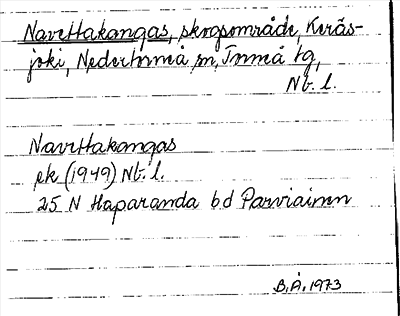 Navettakangas, skogsområde, Keräs-
joki, Nedertorneå sn, Torneå tg,
Nb. l.
Navettakangas
ek (1949) Nb. l.
25 N Haparanda bd Parviainen
B.Å. 1973